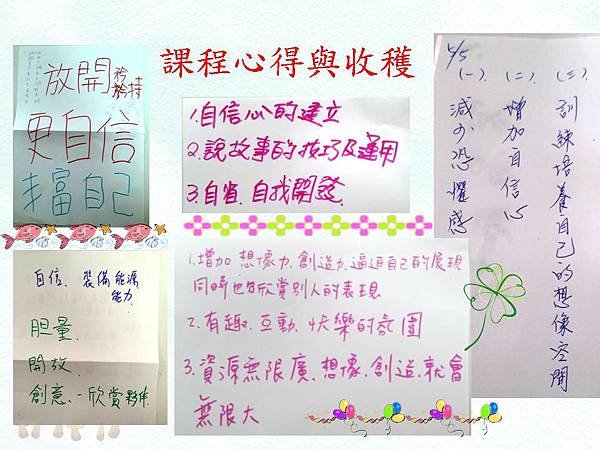 課程心得與收穫
放開矜持
更自信
1.自信心的建立
2.說故事的技巧及運用
3.自省.自我開發.
5/5
(一).減少恐懼感
(二).增加自信心
(三).訓練培養自己的想像空間
自信、裝備能源
能力.
胆量.
開放.
創意、－欣賞夥伴.
1.增加 想像力.創造力.逼迫自己的展現
同時也可欣賞別人的表現
2.有趣.互動.快樂的氛圍
3.資源無限廣、想像.創造.就會
無限大